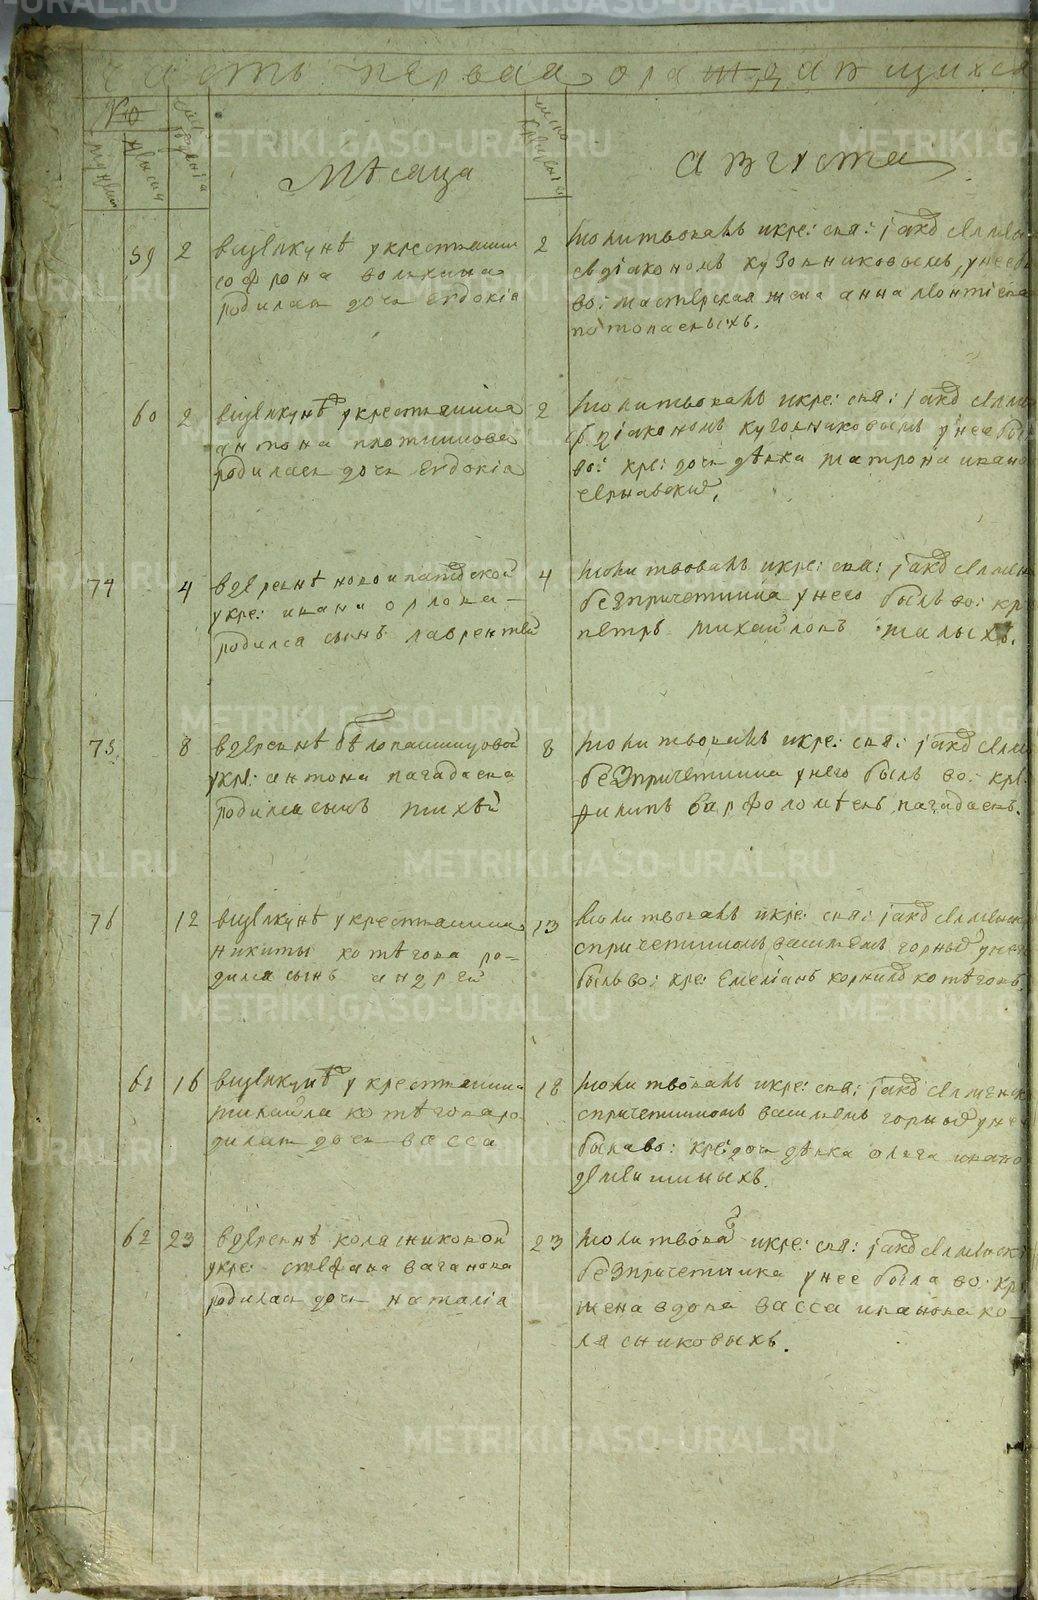 часть первая о раждающихся
№
мужеск
женска
число рождения
Месяца
число крещения
августа
59
2
вщелкунѣ у крестьянина
софрона волкина
родилась дочь евдокіа
2
молитвовалъ и кре: свя: іаковъ
съ діакономъ кузовниковымъ, у нее бы
во: мастерская жена анна леонтіева
потопаевыхъ.
60
2
вщелкунѣ у крестьянина
антона плотникова
родилась дочь евдокіа
2
молитвовалъ и кре: свя: іаковъ
съ діакономъ кузовниковымъ у нее бы
во: кре: дочь дѣвка матрона ивана
чернавских,
74
4
в деревнѣ новоипатовской
у кре: ивана орлова
родился сынъ лаврентей
4
молитвовалъ и кре: свя: іаковъ
без причетника у него былъ во: кр
петръ михайловъ малыхъ.
75
8
в деревнѣ бѣлопашинцовой
у кре: антона пагадаева
родился сынъ михѣй
8
молитвовалъ и кре: свя: іаковъ
без причетника у него былъ во: кре:
филипъ варфоломѣевъ пагадаевъ.
76
12
вщелкунѣ у крестьянина
никиты котѣгова ро-
дился сынъ андрей
13
молитвовалъ и кре: свя: іаковъ
с причетникомъ василіемъ горныхъ у него
былъ во: кре: емеліанъ корнилов котѣговъ.
61
16
вщелкунѣ у крестьянина
михайла котѣгова ро
дилась дочь васса
18
молитвовалъ и кре: свя: іаковъ
с причетникомъ василіемъ горных у нее
была во: кре: дочь дѣвка олга ивано
62
23
в деревнѣ коласниковой
у кре: стефана ваганова
родилась дочь наталіа
23
молитвовал и кре: свя: іаковъ
без причетника у нее была во: кре
жена вдова васса иванова ко-
ласниковыхъ.
METRIKI.GASO-URAL.RU